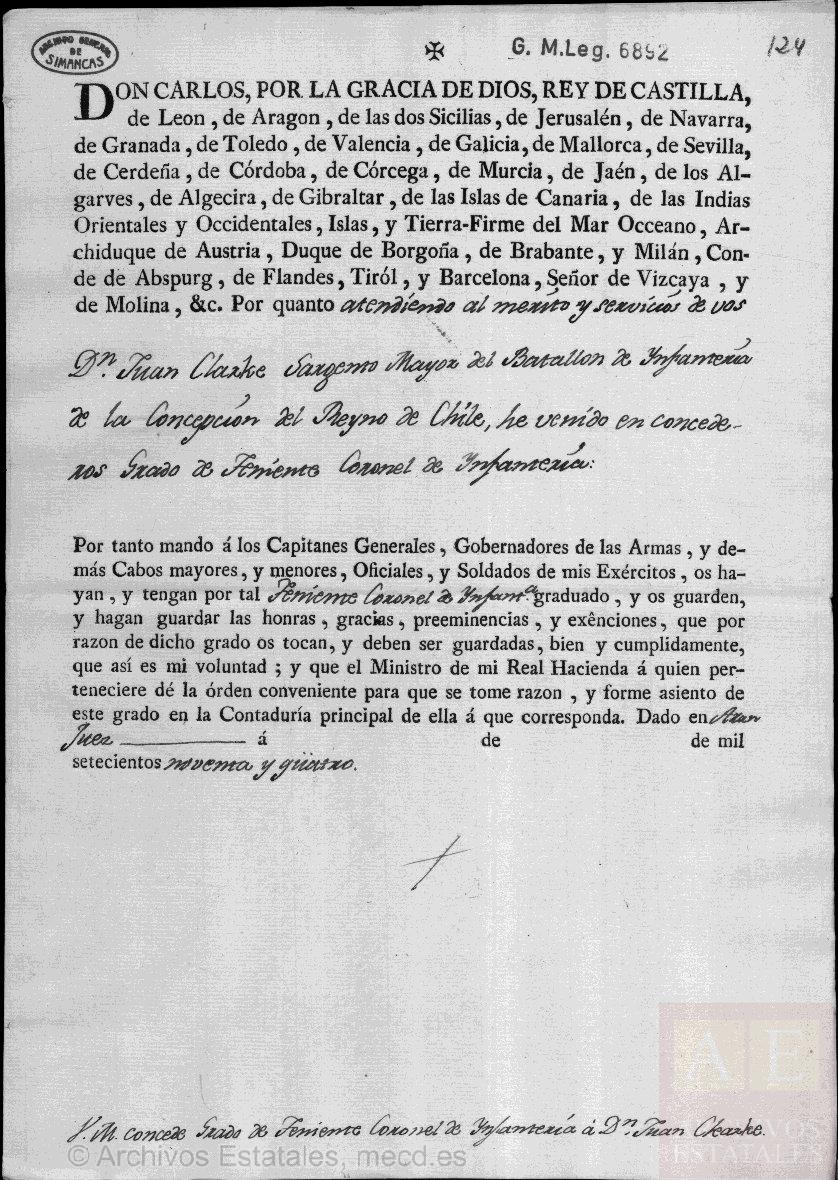 ARCHIVO GENERAL
DE
SIMANCAS
✠ G. M.Leg. 6892 124
DON CARLOS, POR LA GRACIA DE DIOS, REY DE CASTILLA,
de Leon , de Aragon , de las dos Sicilias , de Jerusalén , de Navarra,
de Granada , de Toledo , de Valencia , de Galicia, de Mallorca , de Sevilla,
de Cerdeña , de Córdoba , de Córcega , de Murcia , de Jaén , de los Al-
garves , de Algecira , de Gibraltar , de las Islas de Canaria , de las Indias
Orientales y Occidentales , Islas , y Tierra-Firme del Mar Occeano , Ar-
chiduque de Austria , Duque de Borgoña , de Brabante , y Milán , Con-
de de Abspurg , de Flandes , Tiról , y Barcelona , Señor de Vizcaya , y
de Molina , &c. Por quanto atendiendo al merito y servicios de vos
Dn. Juan Clarke Sargento Mayor del Batallon de Infantería
de la Concepción del Reyno de Chile, he venido en concede-
ros Grado de Teniente Coronel de Infantería:
Por tanto mando á los Capitanes Generales , Gobernadores de las Armas , y de-
más Cabos mayores , y menores , Oficiales , y Soldados de mis Exércitos , os ha-
yan , y tengan por tal Teniente Coronel de Infanta. graduado , y os guarden,
y hagan guardar las honras , gracias , preeminencias , y exênciones , que por
razon de dicho grado os tocan , y deben ser guardadas , bien y cumplidamente,
que así es mi voluntad ; y que el Ministro de mi Real Hacienda á quien per-
teneciere dé la órden conveniente para que se tome razon , y forme asiento de
este grado en la Contaduría principal de ella á que corresponda. Dado en Aran
Juez á de de mil
setecientos noventa y quatro.
V. M. concede Grado de Teniente Coronel de Infantería á Dn. Juan Clearke.
© Archivos Estatales, mecd.es
AE
ARCHIVOS
ESTATALES